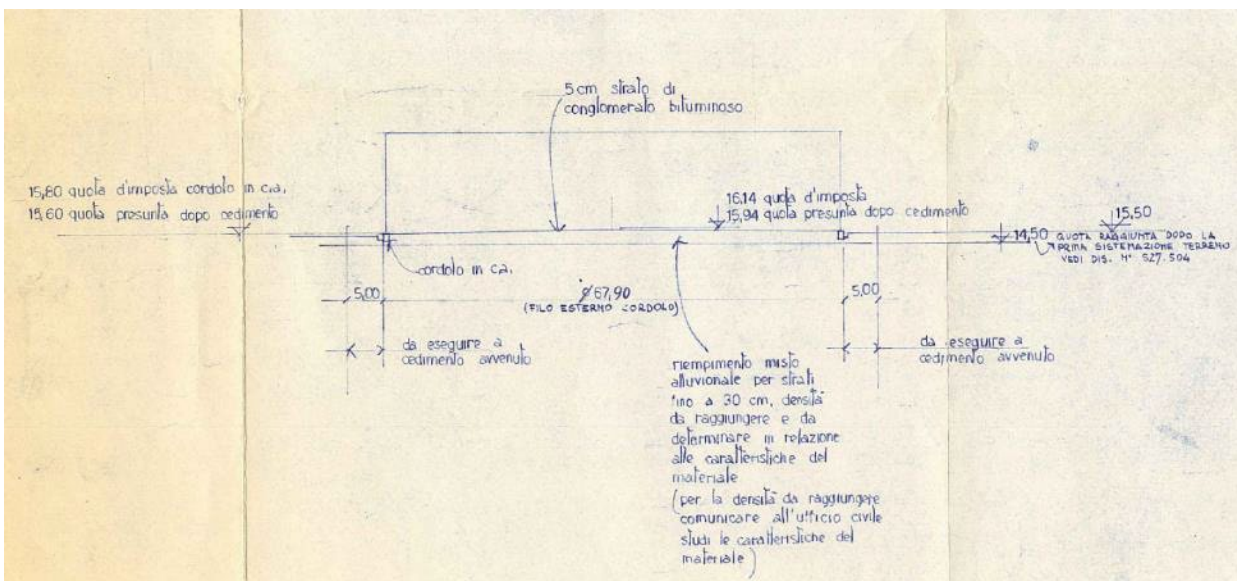 5 cm strato di
conglomerato bituminoso
15,80 quota d'imposta cordolo in c.a.
15,60 quota presunta dopo cedimento
16.14 quota d'imposta
15,94 quota presunta dopo cedimento
15,50
14,50 QUOTA RAGGIUNTA DOPO LA
PRIMA SISTEMAZIONE TERRENO
VEDI DIS. N° 527.504
cordolo in c.a.
5,00
ø 67,90
(FILO ESTERNO CORDOLO)
5,00
da eseguire a
cedimento avvenuto
da eseguire a
cedimento avvenuto
riempimento misto
alluvionale per strati
fino a 30 cm, densità
da raggiungere e da
determinare in relazione
alle caratteristiche del
materiale
(per la densità da raggiungere
comunicare all'ufficio civile
studi le caratteristiche del
materiale)